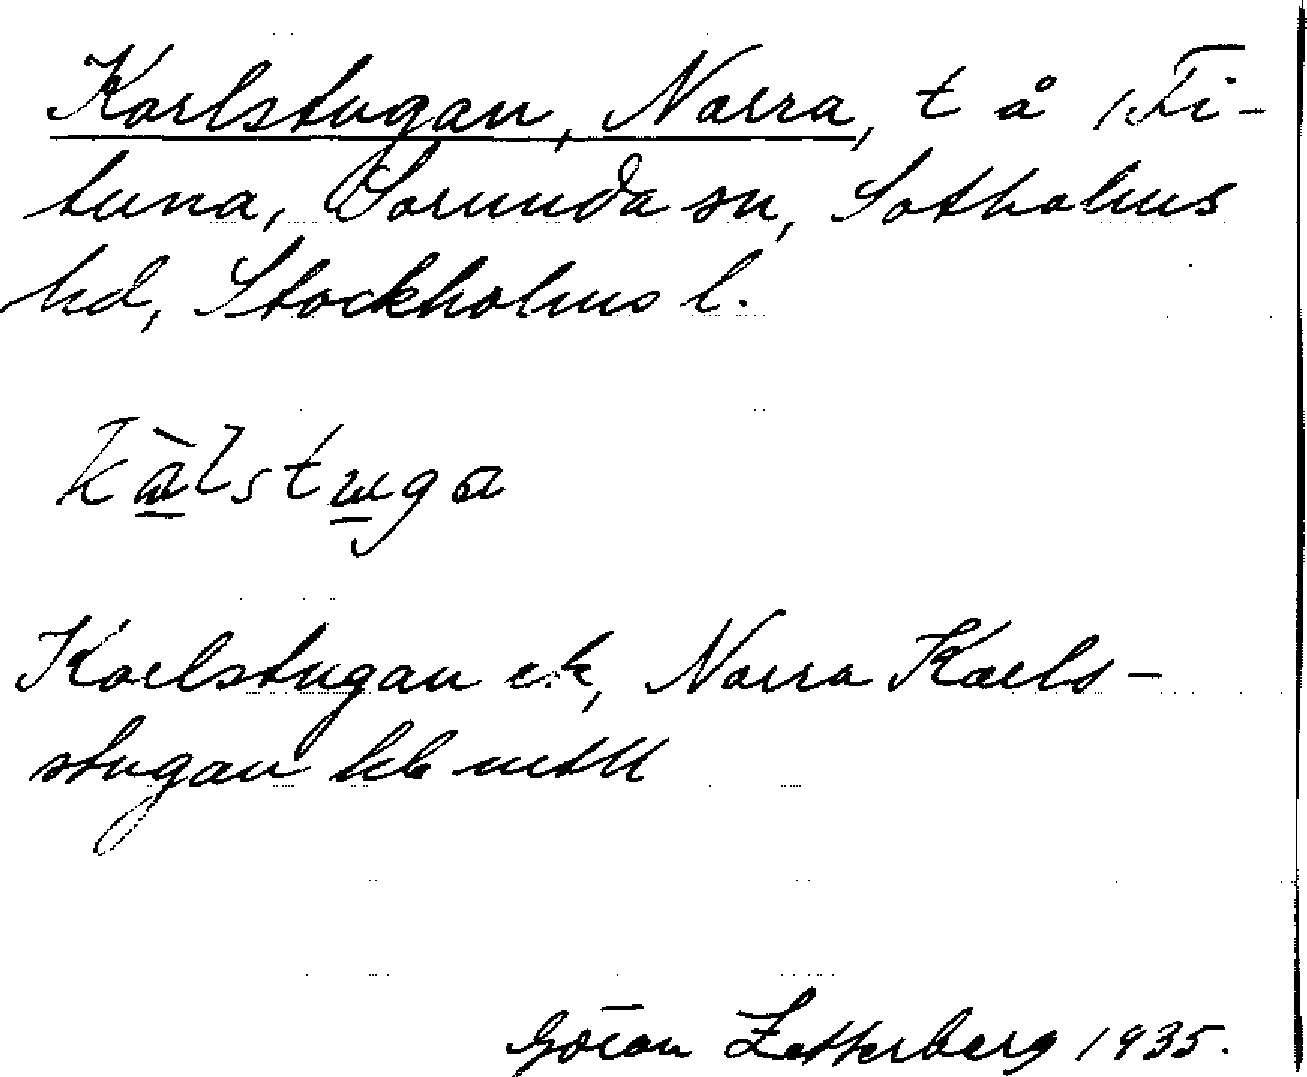 Karlstugan, Norra, t å Fi-
tuna, Sorunda sn, Sotholms
hd, Stockholms l.
kàlstuga
Karlstugan ek, Norra Karls-
stugan hb mtll
Göran Zetterberg 1935.